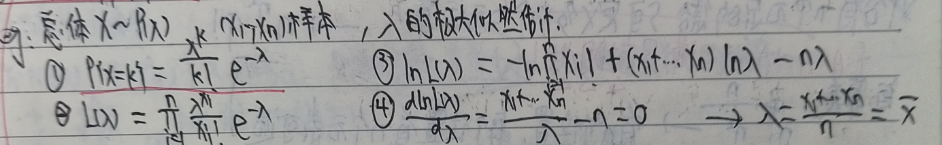 例：总体 X~P(λ) (x₁…xₙ)样本，λ的极大似然估计.
① P{X=k} = λ^k/k! e^{-λ}
② L(λ) = ∏_{i=1}^{n} λ^{xᵢ}/xᵢ! e^{-λ}
③ lnL(λ) = -ln∏_{i=1}^{n} xᵢ! + (x₁+…xₙ) lnλ - nλ
④ dlnL(λ)/dλ = x₁+…xₙ/λ - n = 0 → λ = x₁+…xₙ/n = x̄